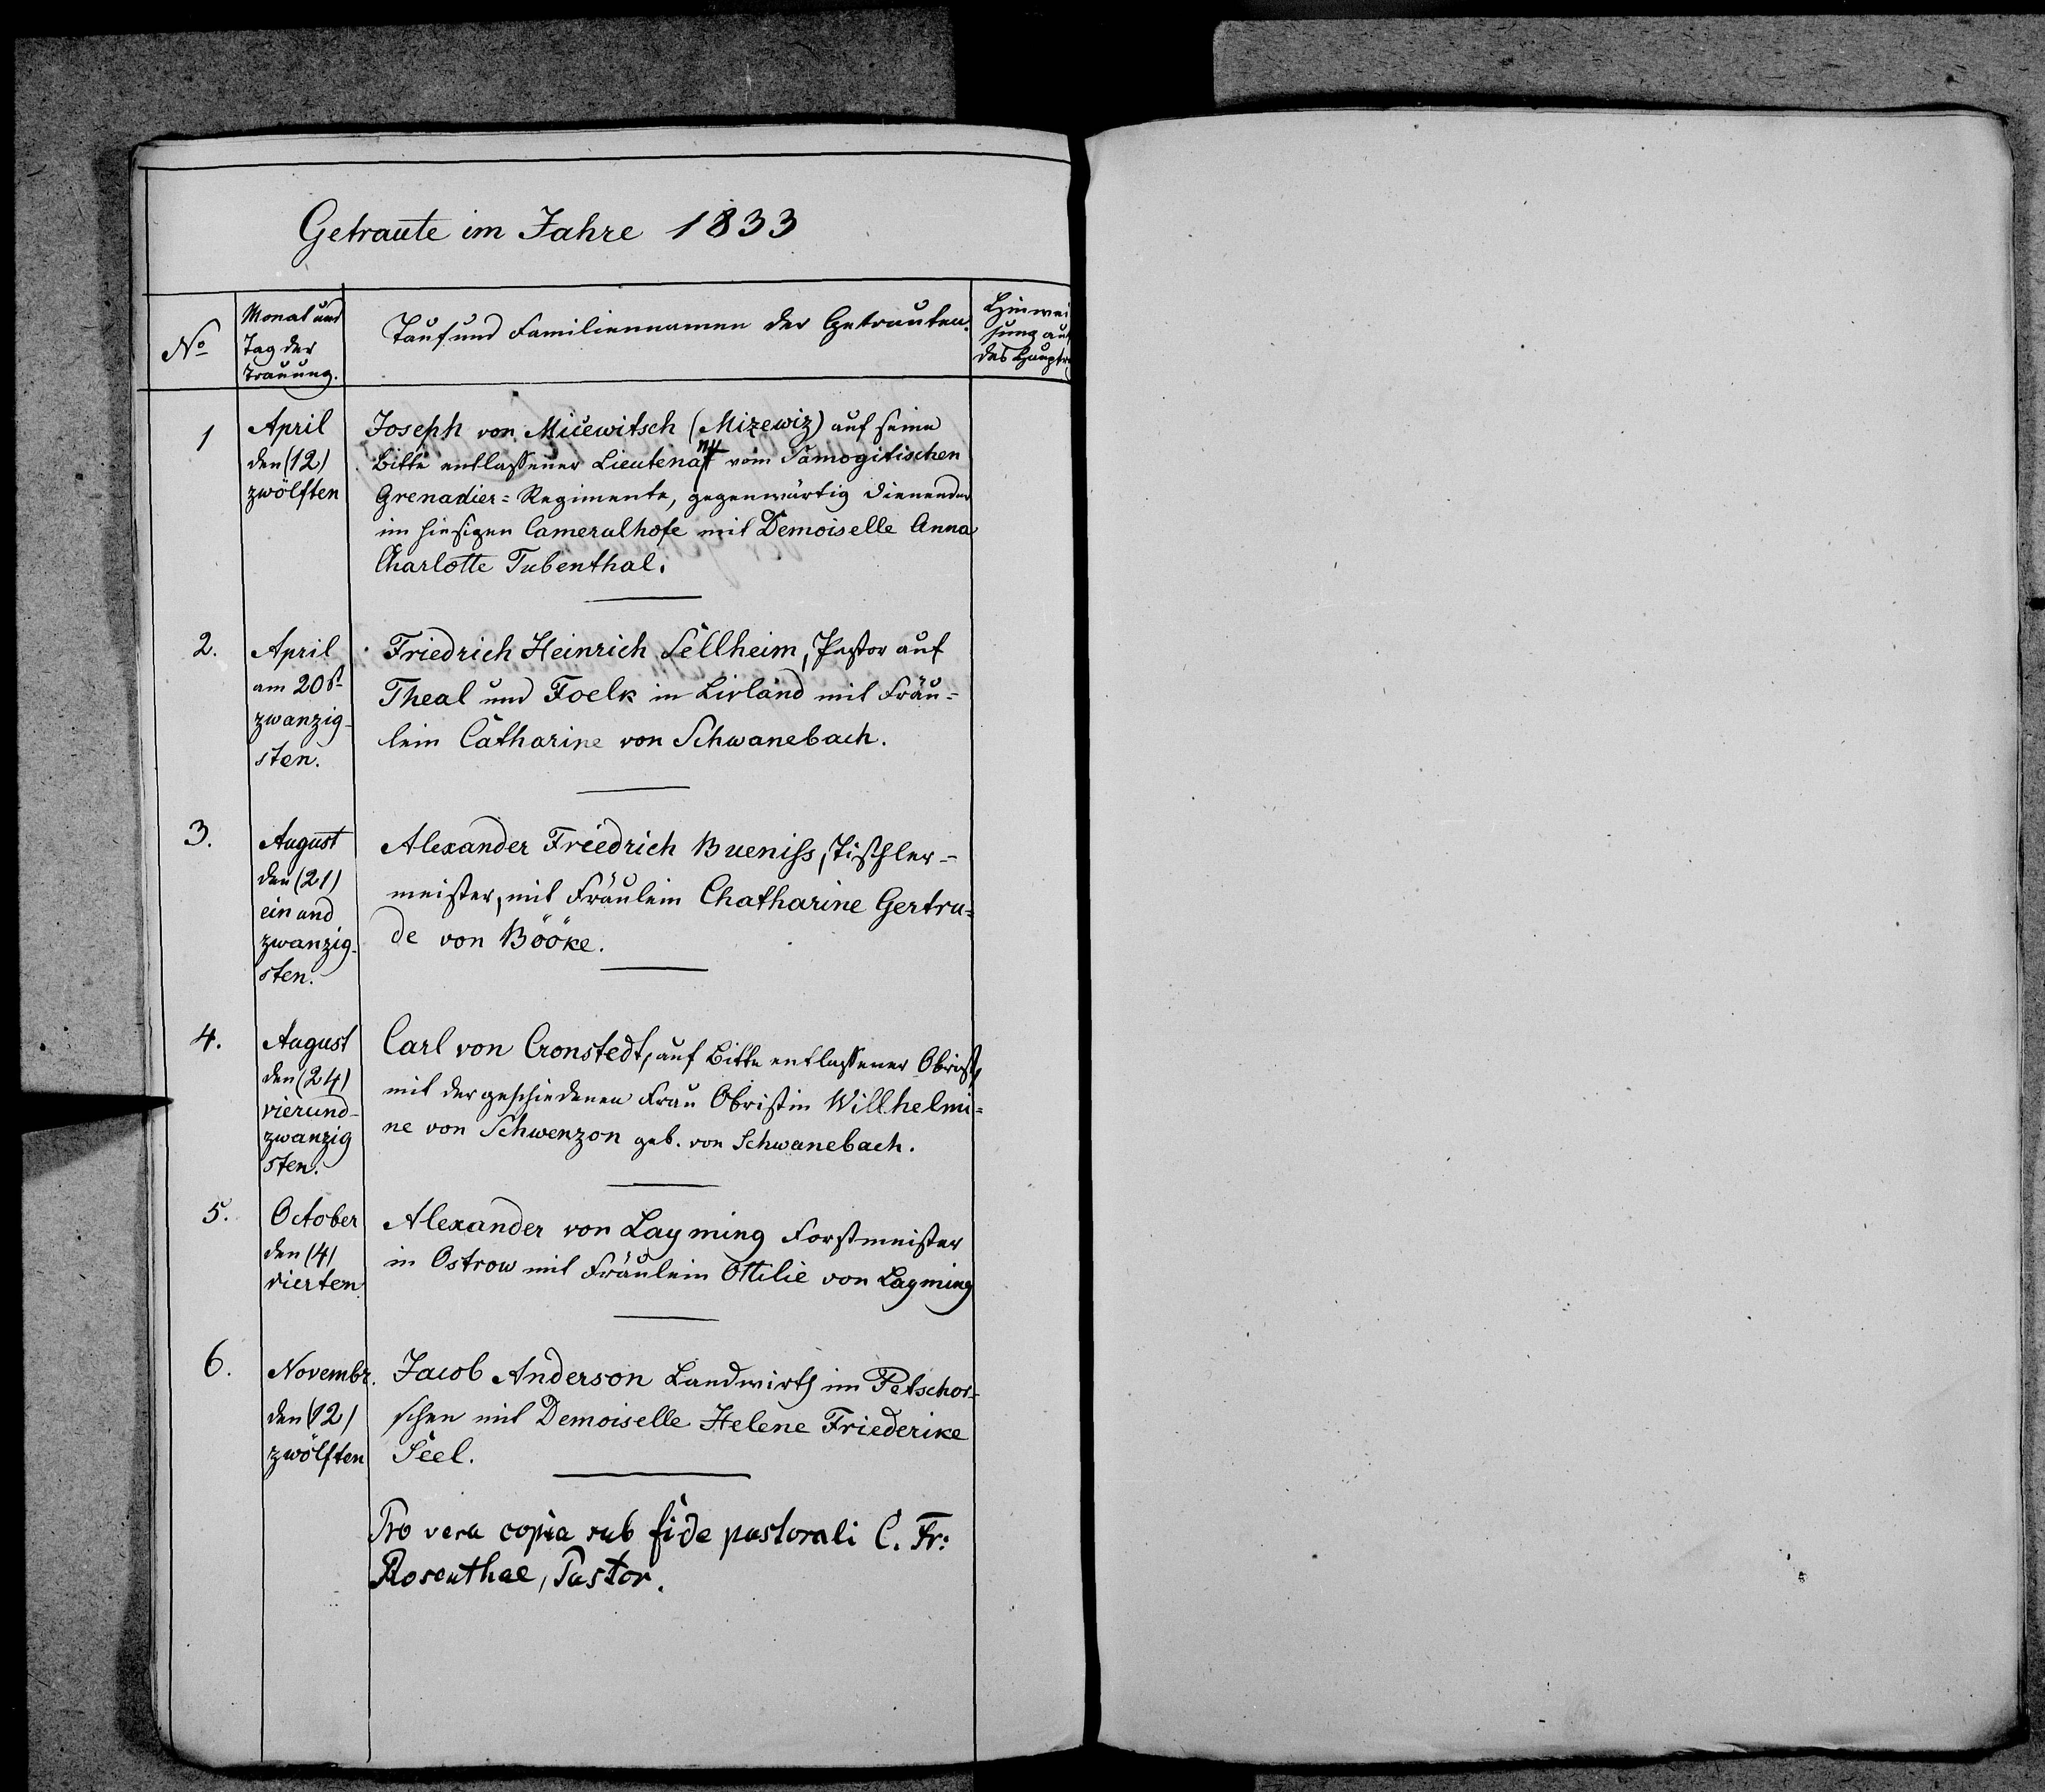 Getraute im Jahre 1833
No
Monat und
Tag der
Trauung.
Tauf und Familiennamen der Getrauten.
Hinwei
sung auf
das Hauptr
1
April
den (12)
zwölften
Joseph von Micewitsch (Mizewiz) auf seine
Bitte entlassener Lieutenant vom Samogitischen
Grenadier= Regimente, gegenwärtig dienender
im hiesigen Cameralhofe mit Demoiselle Anna
Charlotte Tubenthal.
2.
April
am 20st
zwanzig-
sten.
Friedrich Heinrich Sellheim, Pastor auf
Theal und Foelk in Livland mit Fräu=
lein Catharine von Schwanebach.
3.
August
den (21)
ein und
zwanzig-
sten.
Alexander Friedrich Bueniss, Tischler=
meister, mit Fräulein Chatharine Gertru=
de von Bööke.
4.
August
den (24)
vierund-
zwanzig
sten.
Carl von Cronstedt, auf Bitte entlassener Obrist,
mit der geschiedenen Frau Obristin Willhelmi=
ne von Schwenzon geb. von Schwanebach.
5.
October
den (4)
vierten
Alexander von Layming Forstmeister
in Ostrow mit Fräulein Ottilie von Layming
6.
Novembr.
den (12)
zwölften
Jacob Anderson Landwirth im Petschor=
schen mit Demoiselle Helene Friederike
Seel.
Pro vera copia sub fide pastorali C. Fr:
Rosenthal, Pastor.